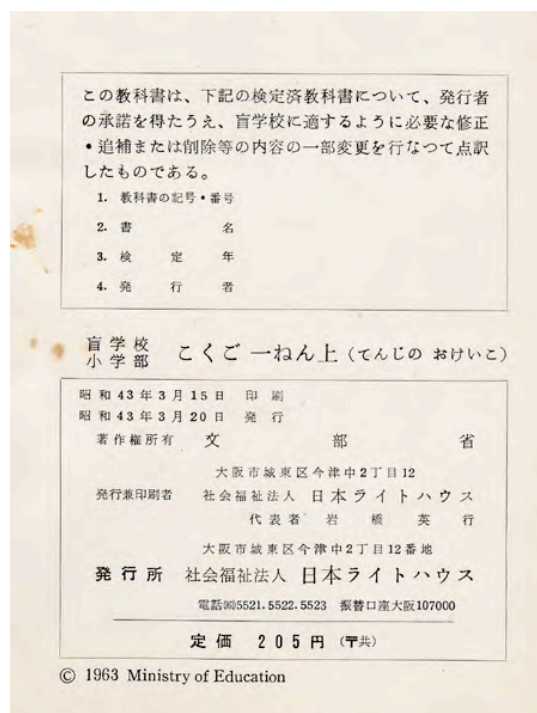 この教科書は、下記の検定済教科書について、発行者
の承諾を得たうえ、盲学校に適するように必要な修正
・追補または削除等の内容の一部変更を行なつて点訳
したものである。
1. 教科書の記号・番号
2. 書名
3. 検定年
4. 発行者
盲学校
小学部 こくご 一ねん上（てんじの おけいこ）
昭和43年3月15日 印刷
昭和43年3月20日 発行
著作権所有 文部省
大阪市城東区今津中2丁目12
発行兼印刷者 社会福祉法人 日本ライトハウス
代表者 岩橋英行
大阪市城東区今津中2丁目12番地
発行所 社会福祉法人 日本ライトハウス
電話 5521.5522.5523 振替口座大阪107000
定価 205円（〒共）
© 1963 Ministry of Education